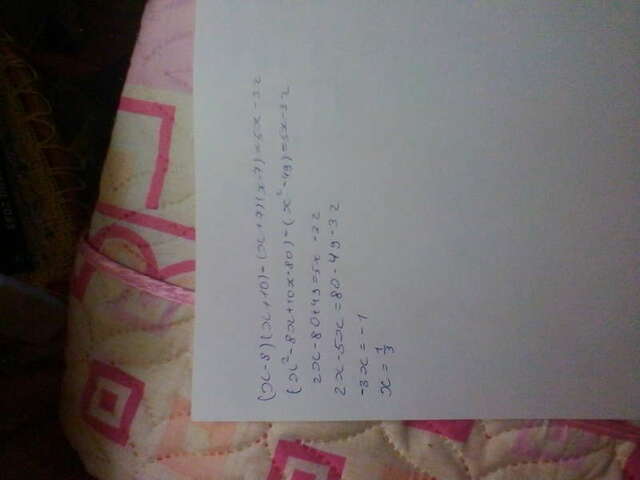 (x-8)(x+10)-(x+7)(x-7)=5x-32
(x²-8x+10x-80)-(x²-49)=5x-32
2x-80+49=5x-32
2x-5x=80-49-32
-3x=-1
x=1/3